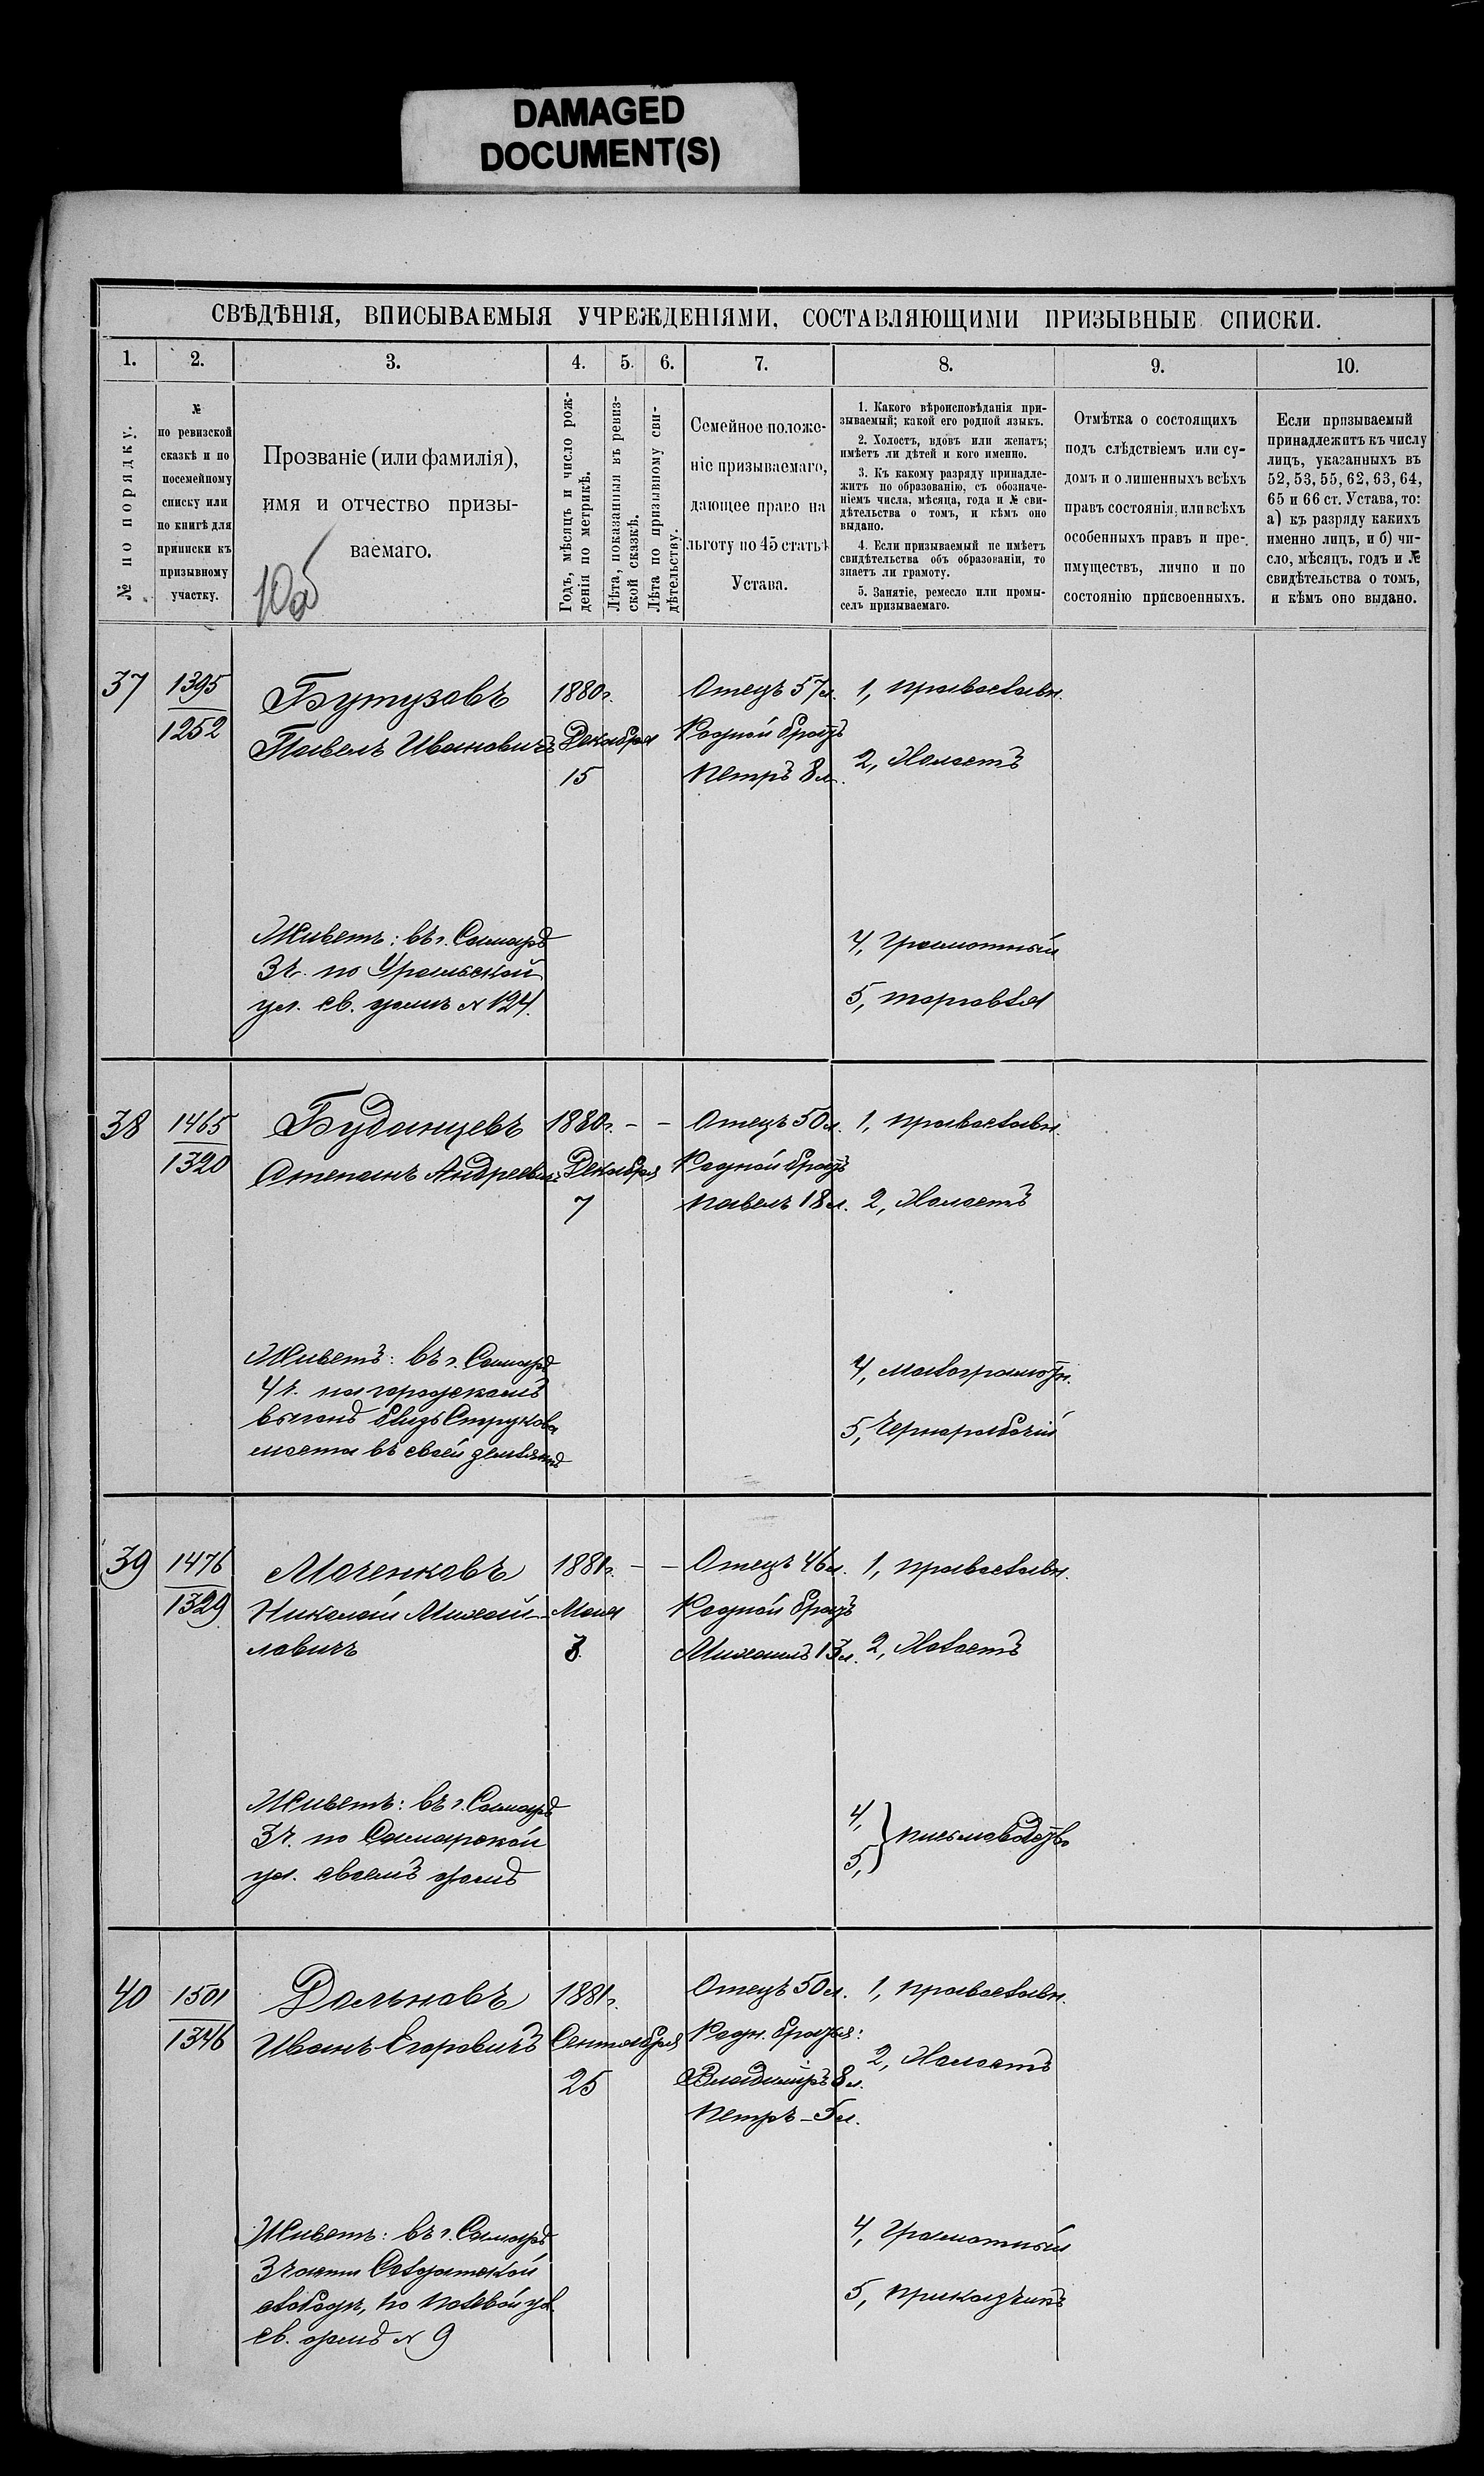 DAMAGED
DOCUMENT(S)
СВѢДѢНІЯ, ВПИСЫВАЕМЫЯ УЧРЕЖДЕНІЯМИ, СОСТАВЛЯЮЩИМИ ПРИЗЫВНЫЕ СПИСКИ.
1. 2. 3. 4. 5. 6. 7. 8. 9. 10.
№ по порядку.
№
по ревизской
сказкѣ и по
посемейному
списку или
по книгѣ для
приписки къ
призывному
участку.
Прозваніе (или фамилія),
имя и отчество призы-
ваемаго.
Годъ, мѣсяцъ и число рож-
денія по метрикѣ.
Лѣта, показанныя въ ревиз-
ской сказкѣ.
Лѣта по призывному сви-
дѣтельству.
Семейное положе-
ніе призываемаго,
дающее право на
льготу по 45 статьѣ
Устава.
1. Какого вѣроисповѣданія при-
зываемый; какой его родной языкъ.
2. Холостъ, вдовъ или женатъ;
имѣетъ ли дѣтей и кого именно.
3. Къ какому разряду принадле-
житъ по образованію, съ обозначе-
ніемъ числа, мѣсяца, года и № сви-
дѣтельства о томъ, и кѣмъ оно
выдано.
4. Если призываемый не имѣетъ
свидѣтельства объ образованіи, то
знаетъ ли грамоту.
5. Занятіе, ремесло или промы-
селъ призываемаго.
Отмѣтка о состоящихъ
подъ слѣдствіемъ или су-
домъ и о лишенныхъ всѣхъ
правъ состоянія, или всѣхъ
особенныхъ правъ и пре-
имуществъ, лично и по
состоянію присвоенныхъ.
Если призываемый
принадлежитъ къ числу
лицъ, указанныхъ въ
52, 53, 55, 62, 63, 64,
65 и 66 ст. Устава, то:
а) къ разряду какихъ
именно лицъ, и б) чи-
сло, мѣсяцъ, годъ и №
свидѣтельства о томъ,
и кѣмъ оно выдано.
37 1395 Бутузовъ 1880г. Отецъ 57л. 1, православн.
1252 Павелъ Ивановичъ Декабря Родной братъ
15 Петръ 8л. 2, Холостъ
Живетъ: въ г. Самарѣ 4, Грамотный
3ч. по Уральской
ул. св. домъ № 124. 5, торговля
38 1465 Буданцевъ 1880г. - - Отецъ 50л. 1, православн.
1320 Степанъ Андреевичъ Декабря Родной братъ
7 Павелъ 18л. 2, Холостъ
Живетъ: въ г. Самарѣ 4, малограмотн.
4ч. на городскомъ
выгонѣ близъ Струкова 5, Чернорабочій
моста въ своей землянкѣ
39 1476 Моченковъ 1881г. - - Отецъ 46л. 1, православн.
1329 Николай Михай- Мая Родной братъ
ловичъ 3 Михаилъ 13л. 2, Холостъ
Живетъ: въ г. Самарѣ 4,
3ч. по Самарской } письмоводство
ул. своемъ домѣ 5,
40 1501 Дольновъ 1881г. Отецъ 50л. 1, православн.
1346 Иванъ Егоровичъ Сентября Родн. братья: 2, Холостъ
25 Владиміръ 8л.
Петръ - 5л.
Живетъ: въ г. Самарѣ 4, Грамотный
3 части Солдатской
слободк, по Полевой ул. 5, приказчикъ
св. домѣ № 9